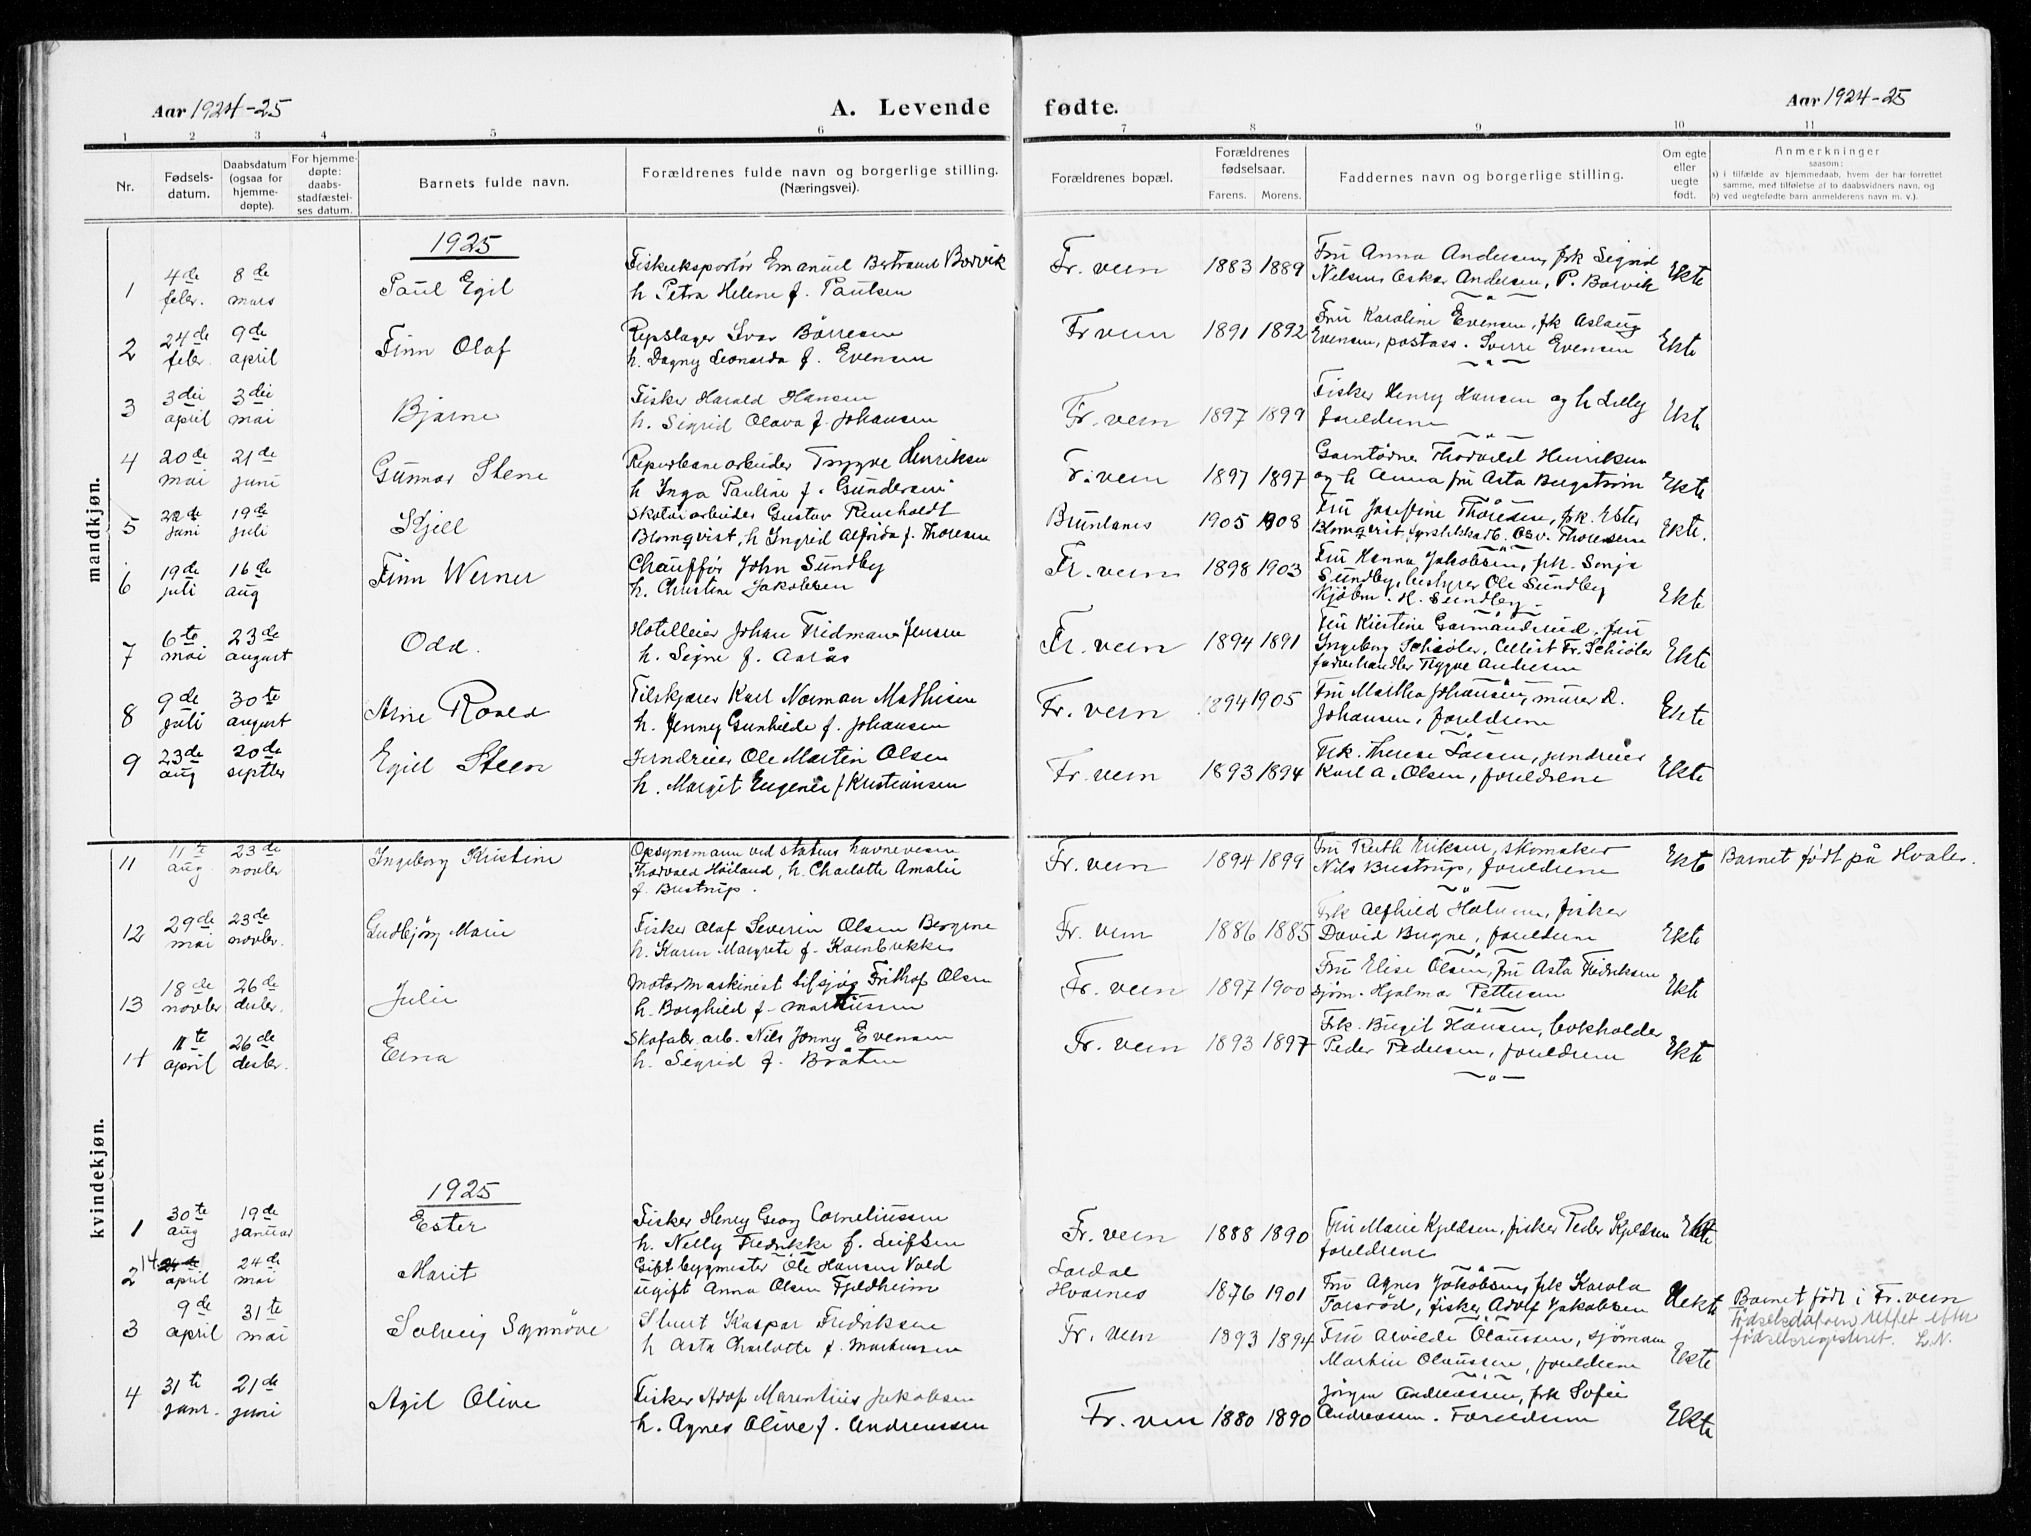 Aar 1924-25
A. Levende fødte.
Aar 1924-25
1 2 3 4 5 6 7 8 9 10 11
Nr.
Fødsels-
datum.
Daabsdatum
(ogsaa for
hjemme-
døpte).
For hjemme-
døpte:
daabs-
stadfæstel-
ses datum.
Barnets fulde navn.
Forældrenes fulde navn og borgerlige stilling.
(Næringsvei).
Forældrenes bopæl.
Forældrenes
fødselsaar.
Farens. Morens.
Faddernes navn og borgerlige stilling.
Om egte
eller
uegte
født.
Anmerkninger
saasom:
a) i tilfælde av hjemmedaab, hvem der har forrettet
samme, med tilføielse af to daabsvidners navn, og
b) ved uegtefødte barn anmelderens navn m. v.).
mandkjøn.
1925
1 4de febr. 8de mars Paul Egil
Fiskeeksportør Emanuel Bertraud Borvik
h. Petra Helene f. Paulsen
Fr. vern 1883 1889
Fru Anna Andersen, frk Sigrid
Nilsen, Oskar Andersen, P. Borvik Ekte
2 24de febr. 9de april Finn Olaf
Repslager Ivar Børresen
h. Dagny Leonarda f. Evensen
Fr vern 1891 1892
Fru Karoline Evensen, frk Aslaug
Evensen, postass. Sverre Evensen Ekte
3 3die april 3die mai Bjarne
Fisker Harald Hansen
h. Sigrid Olava f. Johansen
Fr. vern 1897 1899
Fisker Henry Hansen og h Lilly
foreldrene Ekte
4 20de mai 21de juni Gunnar Stene
Reperbanearbeider Trygve Henriksen
h Inga Pauline f. Gundersen
Fr. vern 1897 1897
Garntørner Thorvald Henriksen
og h Anna fru Asta Bergstrøm Ekte
5 22de juni 19de juli Kjell
Skotøiarbeider Gustav Reinholdt
Blomqvist, h Ingrid Alfrida f. Thoresen
Brunlanes 1905 1908
Fru Josefine Thoresen, frk. Ester
Blomqvist, Osv. Thoresen Ekte.
6 19de juli 16de aug Finn Werner
Chauffør John Sundby
h. Christine Jakobsen
Fr. vern 1898 1903
Fru Hanna Jakobsen, frk. Sonja
Sundby, bestyrer Ole Sundby
Kjøbm. H. Sundby. Ekte
7 6te mai 23de august Odd.
Hotelleier Johan Fridman Jensen
h. Signe f. Aarås
Fr. vern 1894 1891
Fru Kirstine Garmanderud, fru
Ingeborg Schiøler, Cellist Fr. Schiøler
farvehandler Trygve Andersen Ekte
8 9de juli 30te august Arne Roald
Filskjærer Karl Norman Mathisen
h. Jenny Gunhilde f. Johansen
Fr. vern 1894 1905
Fru Martha Johansen, murer D.
Johansen, foreldrene Ekte
9 23de aug 20de septbr Egill Steen
Jerndreier Ole Martin Olsen
h. Margit Eugenie f Kristiansen
Fr. vern 1893 1894
Frk. Therese Larsen, jerndreier
Karl A. Olsen, foreldrene Ekte
kvindekjøn.
11 11te aug. 23de novbr Ingeborg Kristine
Opsynsmann ved statens havnevesen
Thorvald Höiland, h. Charlotte Amalie
f. Bustrup.
Fr. vern 1894 1899
Fru Ruth Eriksen, skomaker
Nils Bustrup, foreldrene Ekte Barnet født på Hvaler.
12 29de mai 23de novbr. Gudbjørg Marie
Fisker Olaf Severin Olsen Bergene
h. Karen Margrete f.
Fr. vern 1886 1885
Frk Alfhild fisker
David foreldrene Ekte
13 18de novbr 26de desbr. Julie
Motormaskinist tilsjøs Frithof Olsen
h. Borghild f. Markussen
Fr. vern 1897 1900
Fru Elise Olsen, fru Asta Fredriksen
sjøm. Hjalmar Pettersen Ekte
14 11te april 26de desbr. Erna
Skofabr. arb. Nils Jonny Evensen
h. Sigrid f. Bråten
Fr. vern 1893 1897
Frk. Birgit Hansen, bokholder
Peder Pedersen, foreldrene Ekte
1925
1 30te aug 19de januar Ester
Fisker Henry Georg Corneliussen
h. Nelly Fredrikke f. Leifsen
Fr. vern 1888 1890
Fru Marie Kjeldsen, fisker Peder Kjeldsen Ekte
foreldrene
2 14 24de april 24de mai Marit
Gift bygmester Ole Hansen Vold
ugift Anna Olsen Fjeldheim
Lardal
Hvarnes 1876 1901
Fru Agnes Jakobsen, frk Karola
Forsrød, fisker Adolf Jakobsen Uekte Barnet født i Fr. vern
Fødselsdatoen rettet efter
fødselsregisteret. L.N.
3 9de april 31te mai Solveig Synnøve
Stuert Kaspar Fredriksen
h Asta Charlotte f. Markussen
Fr. vern 1893 1894
Fru Alvilde Olaussen, sjømann
Martin Olaussen, foreldrene Ekte
4 31te janr. 21de juni Agil Olive
Fisker Adolf Marentius Jakobsen
h. Agnes Olive f. Andreassen
Fr. vern 1880 1890
Jørgen Andreassen, frk Sofie
Andreassen. Foreldrene Ekte